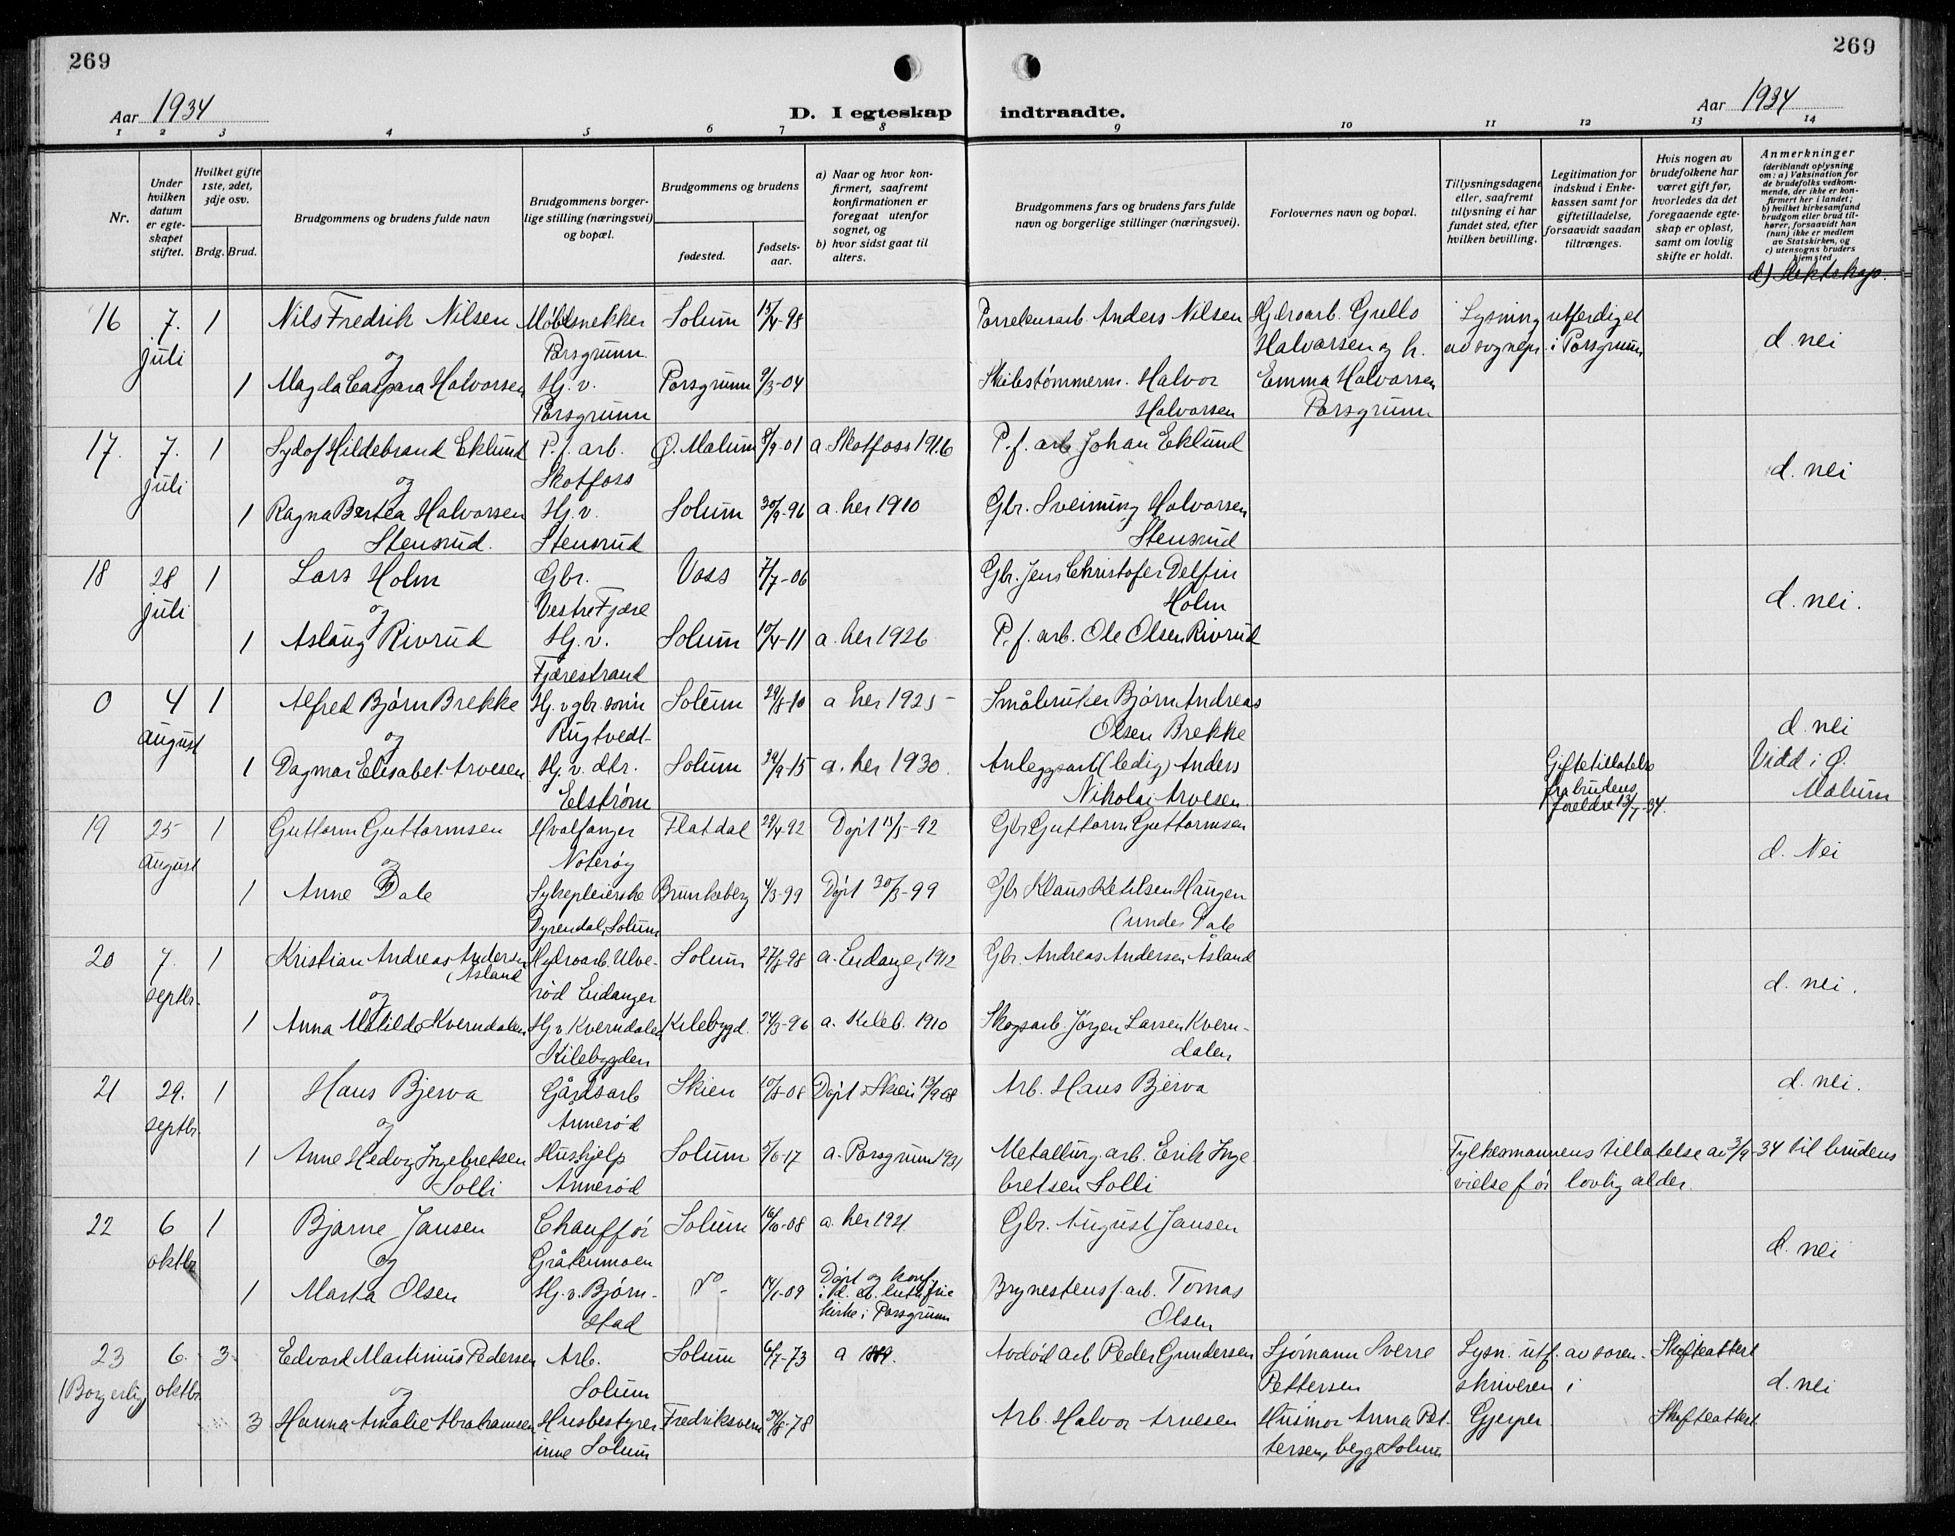 269
269
Aar 1934
D. I egteskap
indtraadte.
Aar 1934
1 2 3 4 5 6 7 8 9 10 11 12 13 14
Nr.
Under hvilken datum er egte-skapet stiftet.
Hvilket gifte 1ste, 2det, 3dje osv.
Brdg. Brud.
Brudgommens og brudens fulde navn
Brudgommens borger-lige stilling (næringsvei) og bopæl.
Brudgommens og brudens
fødested.
fødsels-aar.
a) Naar og hvor kon-firmert, saafremt konfirmationen er foregaat utenfor sognet, og
b) hvor sidst gaat til alters.
Brudgommens fars og brudens fars fulde navn og borgerlige stillinger (næringsvei).
Forlovernes navn og bopæl.
Tillysningsdagene eller, saafremt tillysning ei har fundet sted, efter hvilken bevilling.
Legitimation for indskud i Enke-kassen samt for giftetilladelse, forsaavidt saadan tiltrænges.
Hvis nogen av brudefolkene har været gift før, hvorledes da det foregaaende egte-skap er opløst, samt om lovlig skifte er holdt.
Anmerkninger
(deriblandt oplysning om: a) Vaksination for de brudefolks vedkom-mende, der ikke er kon-firmert her i landet; b) hvilket kirkesamfund brudgom eller brud til-hører, forsaavidt han (hun) ikke er medlem av Statskirken, og c) utensogns bruders hjemsted
d) Slektskap.
16 7. juli 1 Nils Fredrik Nilsen Møbelsnekker Porsgrunn Solum 15/4-98 Porselensarb. Anders Nilsen Hydroarb. Gullo Halvorsen og h. Lysning utferdiget av sogнepr. i Porsgrunn d. nei
og
1 Magda Caspara Halvorsen Hj. v. Porsgrunn Porsgrunn 9/3-04 Skibstømmerm. Halvor Halvorsen Emma Halvorsen Porsgrunn
17. 7. juli 1 Sydof Hildebrand Eklund P. f. arb. Skotfoss Ø. Malum 8/9-01 a. Skotfoss 1916 P. f. arb Johan Eklund d. nei
og
1 Ragna Bertea Halvorsen Stensrud. Hj. v. Stensrud Solum 30/9-96 a. her 1910 Gbr. Sveinung Halvorsen Stensrud
18 28 juli 1 Lars Holm Gbr. Vestre Fjære Voss 7/7-06 Gbr. Jens Christofer Delfin Holm d. nei.
og
1 Aslaug Rivrud Hj. v. Fjærestrand Solum 10/4-11 a. her 1926 P. f. arb. Ole Olsen Rivrud
0 4 august 1 Alfred Bjørn Brekke Hj. v gbr. sønn Rugtvedt Solum 29/8-10 a her 1925 Småbruker Bjørn Andreas Olsen Brekke d. nei
og
1 Dagmar Elisabet Arvesen Hj. v. dtr. Elstrøm Solum 29/9-15 a. her 1930. Anleggsarb (ledig) Anders Nikolai Arvesen Giftetillatelse fra brudens foreldre 13/7-34. Vidd i Ø. Malum
19 25 august 1 Guttorm Guttormsen Hvalfanger Noterøy Flatdal 29/4-92 Døpt 15/5-92 Gbr Guttorm Guttormsen d. Nei
og
1 Anne Dale Sykepleierske Dyrendal, Solum Brunkeberg 4/3-99 Døpt 30/3-99 Gbr Klaus Ketilsen Haugen (under Dale
20 7. septbr. 1 Kristian Andreas Andersen (Åsland Hydroarb. Ulve-rød Eidanger Solum 27/8-98 a. Eidanger 1912 Gbr. Andreas Andersen Åsland d. nei.
og
1 Anna Matilde Kverndalen Hj. v Kverndalen Kilebygden Kilebygd. 24/3-96 a. Kileb. 1910 Skogsarb Jørgen Larsen Kvern-dalen
21 29. septbr. 1 Hans Bjerva Gårdsarb Annerød Skien 10/8-08 Døpt i Skien 13/9 08 Arb. Hans Bjerva d. nei.
og
1 Anne Hedvig Ingebretsen Solli Hushjelp Annerød Solum 5/6-17 a. Porsgrunn 1931 Metallurg. arb. Erik Inge-bretsen Solli Fylkesmannens tillatelse av 3/9-34 til brudens vielse før lovlig alder.
22 6 oktbr 1 Bjarne Jansen Chauffør Gråtenmoen Solum 16/10-08 a. her 1921 Gbr. August Jansen d. nei
og
1 Marta Olsen Hj. v. Bjørn-stad do- 14/1-09 Døpt og konf. i d. ev. luth. frie kirke i Porsgrunn Brynestensf. arb. Tomas Olsen
23 (Borgerlig 6. oktbr. 3 Edvard Martinius Pedersen Arb. Solum Solum 6/7-73 a 1889. Avdød arb Peder Gundersen Sjømann Sverre Pettersen Lysn. utf. av soren-skriveren i Skifteattest d. nei
og
3 Hanna Amalie Abrahamsen Husbestyrer-inne Solum Fredriksvern 30/8-78 Arb. Halvor Arvesen Husmor Anna Pet-tersen, begge Solum Gjerpen Skifteattest